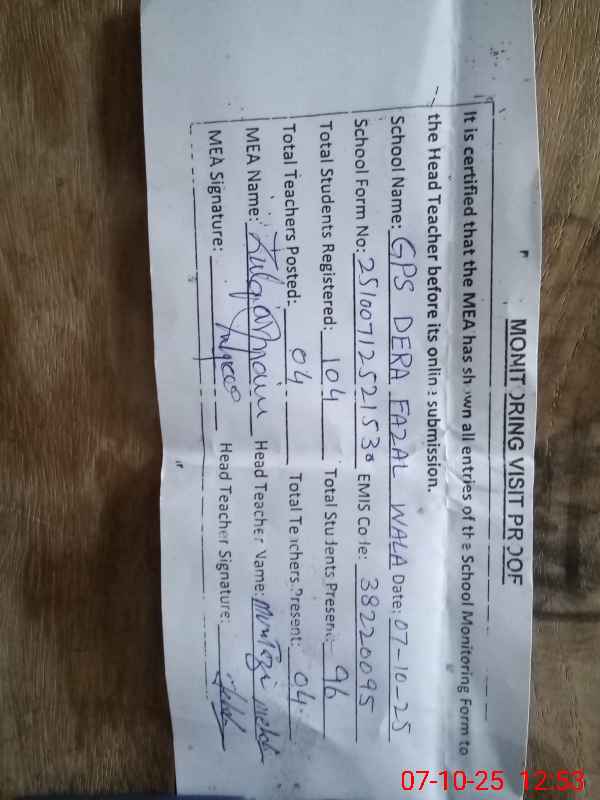 MONITORING VISIT PROOF
It is certified that the MEA has shown all entries of the School Monitoring Form to
the Head Teacher before its online submission.
School Name: GPS DERA FAZAL WALA Date: 07-10-25
School Form No: EMIS Code: 38220095
Total Students Registered: 104 Total Students Present: 96
Total Teachers Posted: 04 Total Teachers Present: 04
MEA Name: Head Teacher Name:
MEA Signature: Head Teacher Signature:
07-10-25 12:53